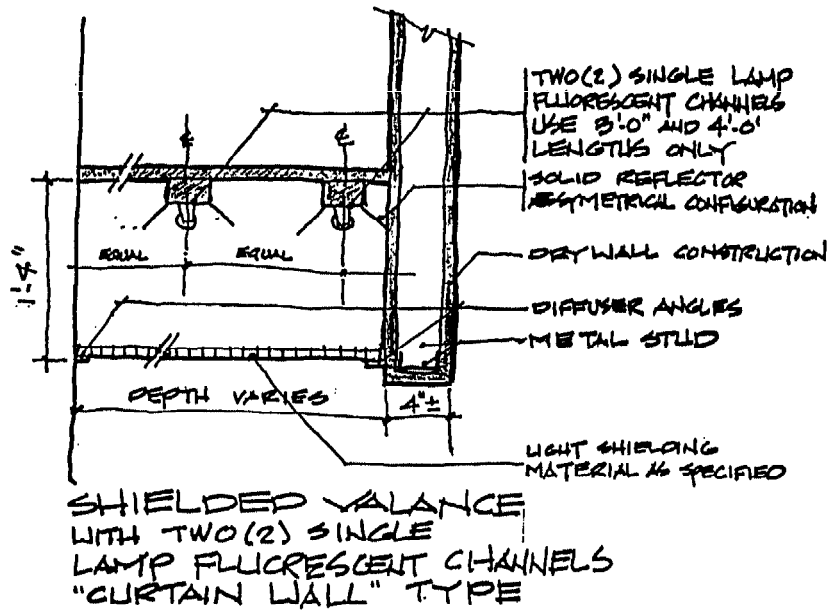 TWO(2) SINGLE LAMP
FLUORESCENT CHANNELS
USE 3'-0" AND 4'-0"
LENGTHS ONLY
SOLID REFLECTOR
ASYMETRICAL CONFIGURATION
EQUAL
EQUAL
DRYWALL CONSTRUCTION
1'-4"
DIFFUSER ANGLES
METAL STUD
DEPTH VARIES
4"±
LIGHT SHIELDING
MATERIAL AS SPECIFIED
SHIELDED VALANCE
WITH TWO(2) SINGLE
LAMP FLUORESCENT CHANNELS
"CURTAIN WALL" TYPE